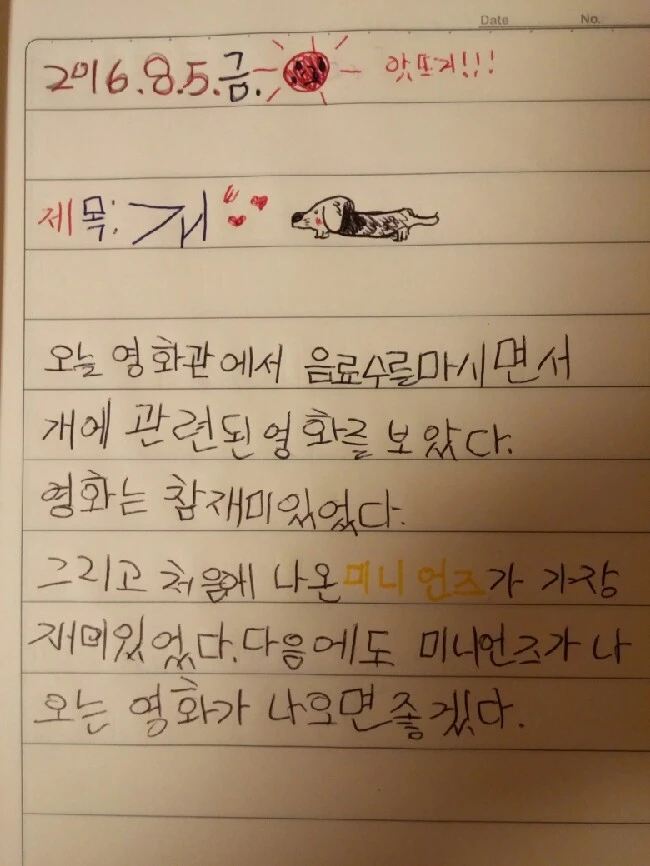 Date No.
2016.8.5.금. 앗뜨거!!!
제목: 개
오늘 영화관에서 음료수를마시면서
개에 관련된영화를 보았다.
영화는 참재미있었다.
그리고 처음에 나온미니언즈가 가장
재미있었다.다음에도 미니언즈가 나
오는 영화가 나오면좋겠다.